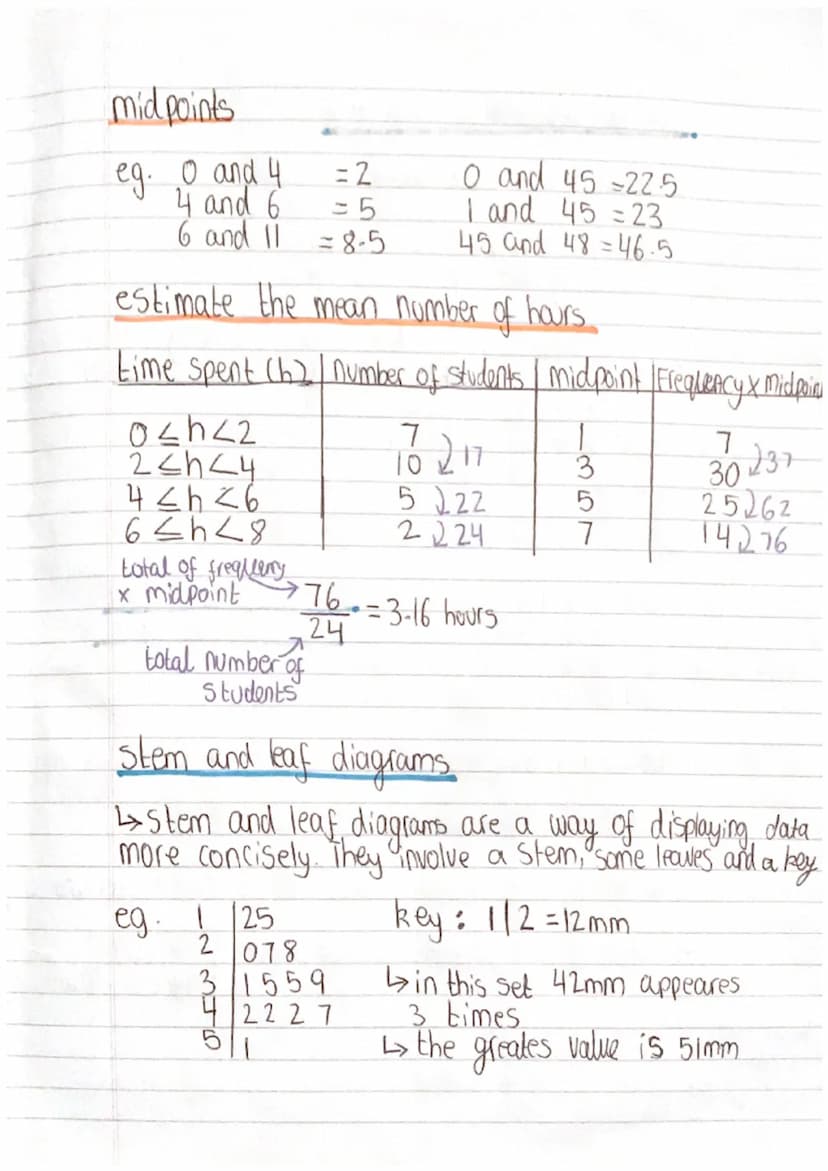 midpoints
eg. 0 and 4 = 2 0 and 45 = 22.5
4 and 6 = 5 1 and 45 = 23
6 and 11 = 8.5 45 and 48 = 46.5
estimate the mean number of hours
time spent (h) | number of students | midpoint | Frequency x Midpoint
0 ≤ h < 2 7 1 7
2 ≤ h < 4 10 17 3 30 37
4 ≤ h < 6 5 22 5 25 62
6 ≤ h < 8 2 24 7 14 76
total of frequency
x midpoint → 76/24 = 3.16 hours
total number of
students
stem and leaf diagrams
↳ stem and leaf diagrams are a way of displaying data
more concisely. They involve a stem, some leaves and a key
eg. 1 | 25 key : 1|2 = 12mm
2 | 078
3 | 1559 ↳ in this set 42mm appeares
4 | 2227 3 times
5 | 1 ↳ the greates value is 51mm